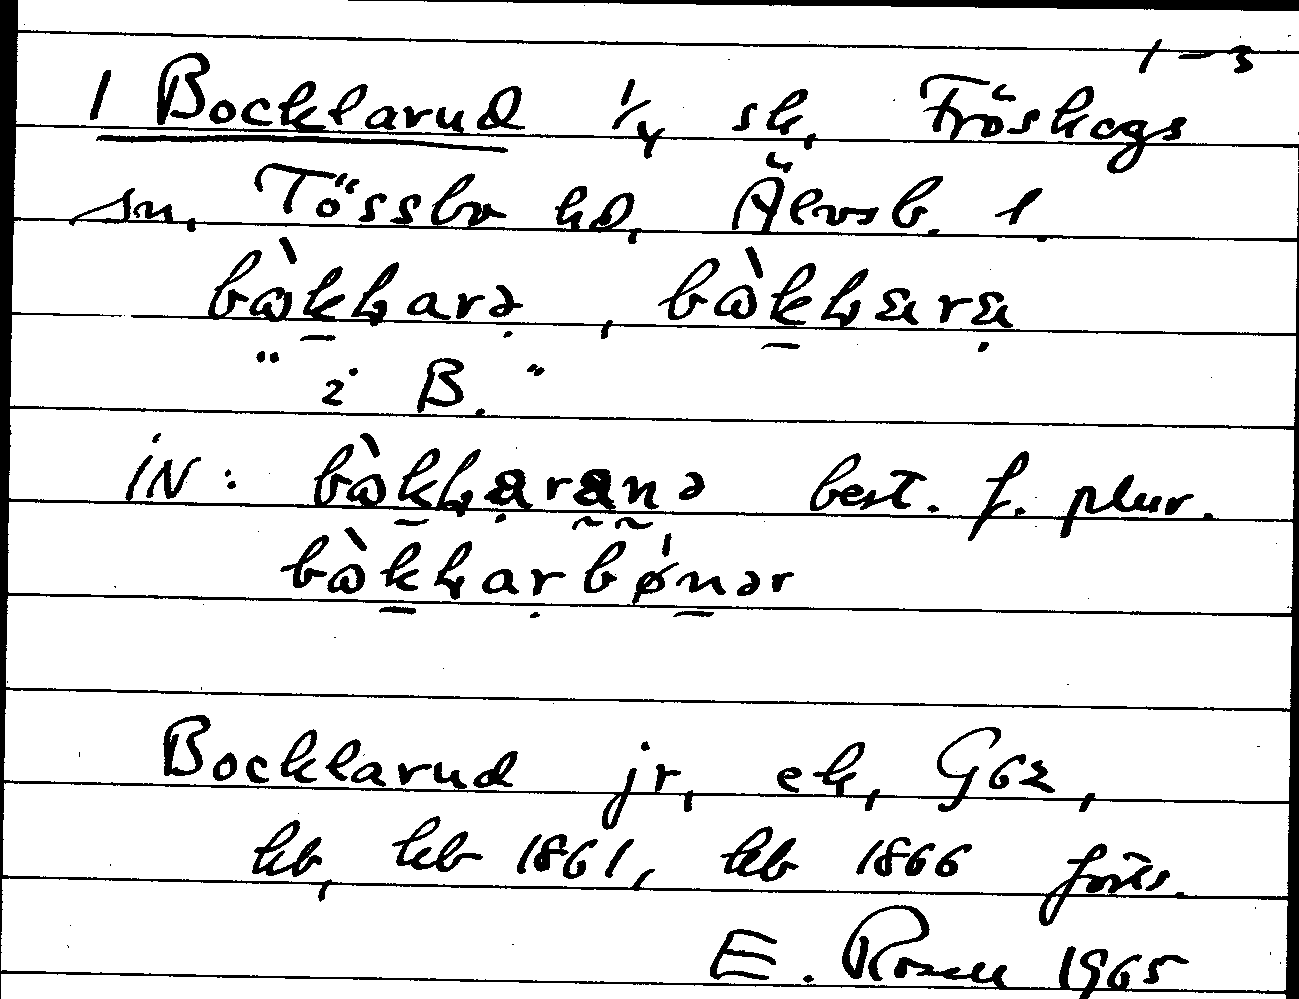 1–3
1 Bocklarud 1/4 sk, Fröskogs
sn, Tössbo hd, Älvsb. l.
bɷ̀k̠ɫarə̣, bɷ̀k̠ɫɛrɛ̣
" i B. "
iN: bɷ̀k̠ɫạra̰n̰ə best. f. plur.
bɷ̀k̠ɫaṛbǿn̠ər
Bocklarud jr, ek, Göz,
kb, hb 1861, kb 1866 forts.
E. Rosell 1965